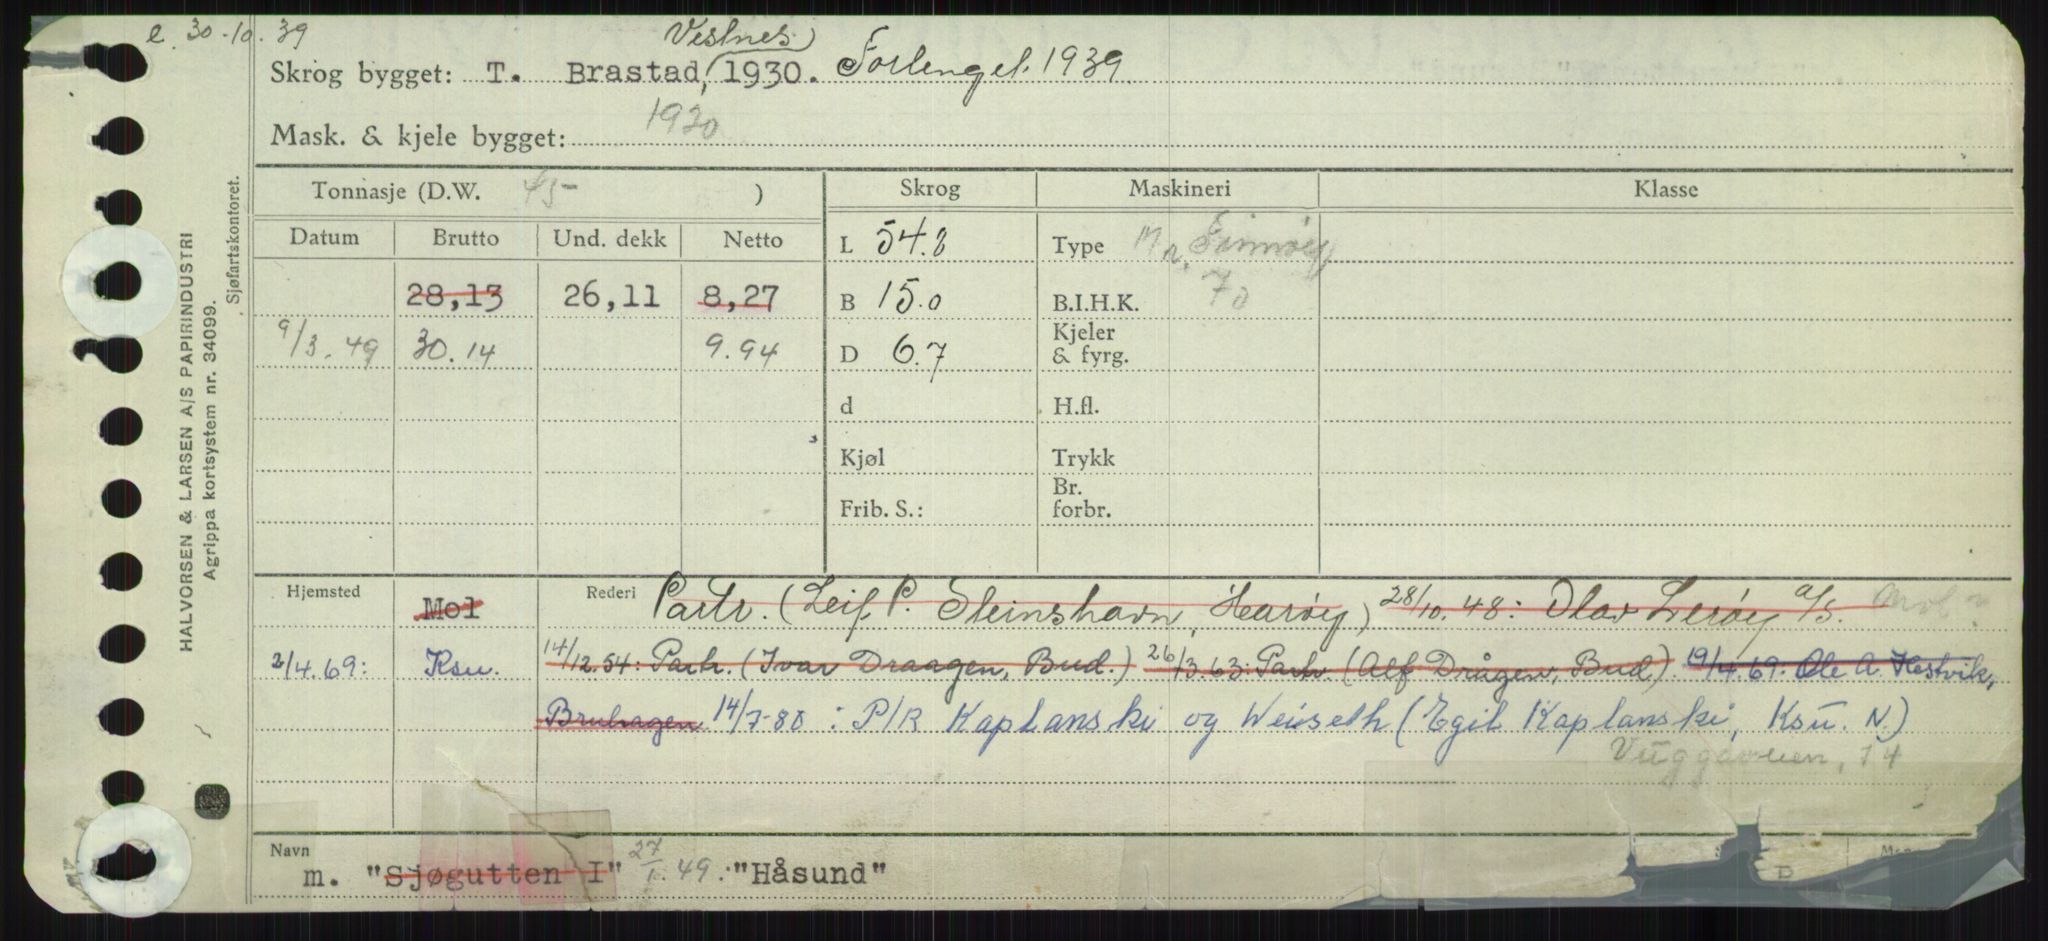 e. 30-10.39
Vestnes
Skrog bygget: T. Brastad, 1930. Forlenget 1939.
Mask. & kjele bygget: 1930
Tonnasje (D.W. 45 )
Skrog
Maskineri
Klasse
Datum Brutto Und. dekk Netto
L 54.8
Type M Finnøy
28,13 26,11 8,27
B 15.0
B.I.H.K. 70
9/3.49 30.14 9.94
D 6.7
Kjeler
& fyrg.
d
H.fl.
Kjøl
Trykk
Br.
Frib. S.:
forbr.
Hjemsted Mol Rederi Partr. (Leif P. Steinshavn, Harøy) 28/10.48: Olav Lerøy a/s. Mol
2/4.69: Ksu. 14/12.54: Partr. (Ivar Draagen, Bud.) 26/3.63: Partr (Alf Drågen, Bud) 19/4.69: Ole A. Hestvik,
Bruhagen 14/7-80 : P/R Kaplanski og Weiseth (Egil Kaplanski, Ksu. N)
14
Navn
m. "Sjøgutten I" 27/1.49: "Håsund"
D
HALVORSEN & LARSEN A/S PAPIRINDUSTRI
Agrippa kortsystem nr. 34099.
Sjøfartskontoret.